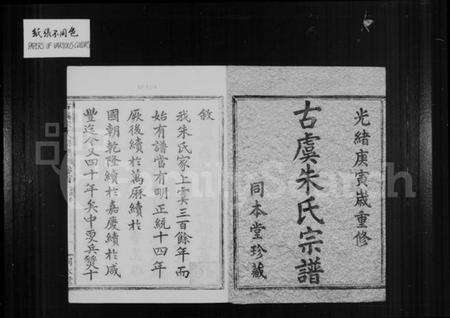 紙張不同色
PAPERS OF VARIOUS COLORS
光緒庚寅歲重修
古虞朱氏宗譜
同本堂珍藏
敘
我朱氏家上虞三百餘年而
始有譜當有明正統十四年
厥後續於萬厤續於
國朝乾隆續於嘉慶續於咸
豐迄今又四十年矣中更兵燹十